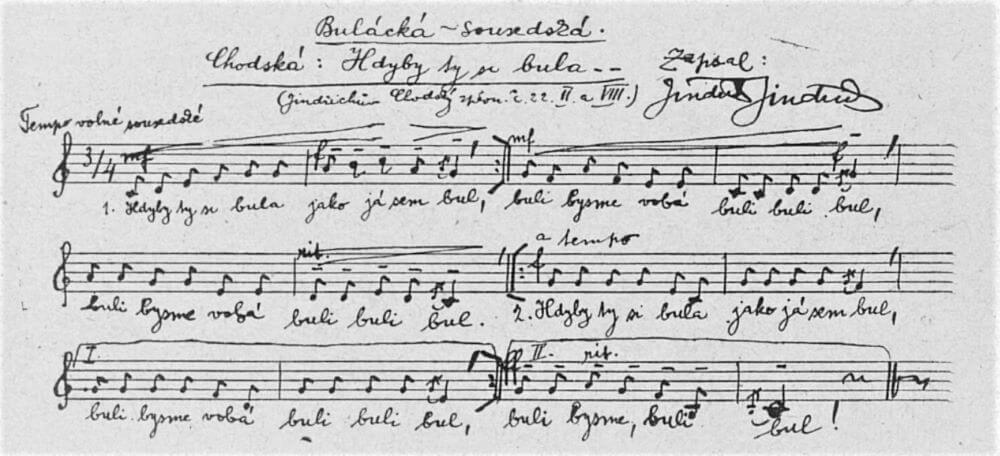 Bulácká - sousedská.
Chodská: Hdyby ty si bula -- Zapsal:
(Jindřichův Chodský zpěvn. č. 22. II. a VIII.) Jindřich Jindřich
Tempo volně sousedské
3/4 mf f mf f
1. Hdyby ty si bula jako já sem bul, buli bysme vobá buli buli bul,
rit. a tempo
f
buli bysme vobá buli buli bul. 2. Hdyby ty si bula jako já sem bul,
I. ff II. rit.
buli bysme vobá buli buli bul, buli bysme, buli bul!